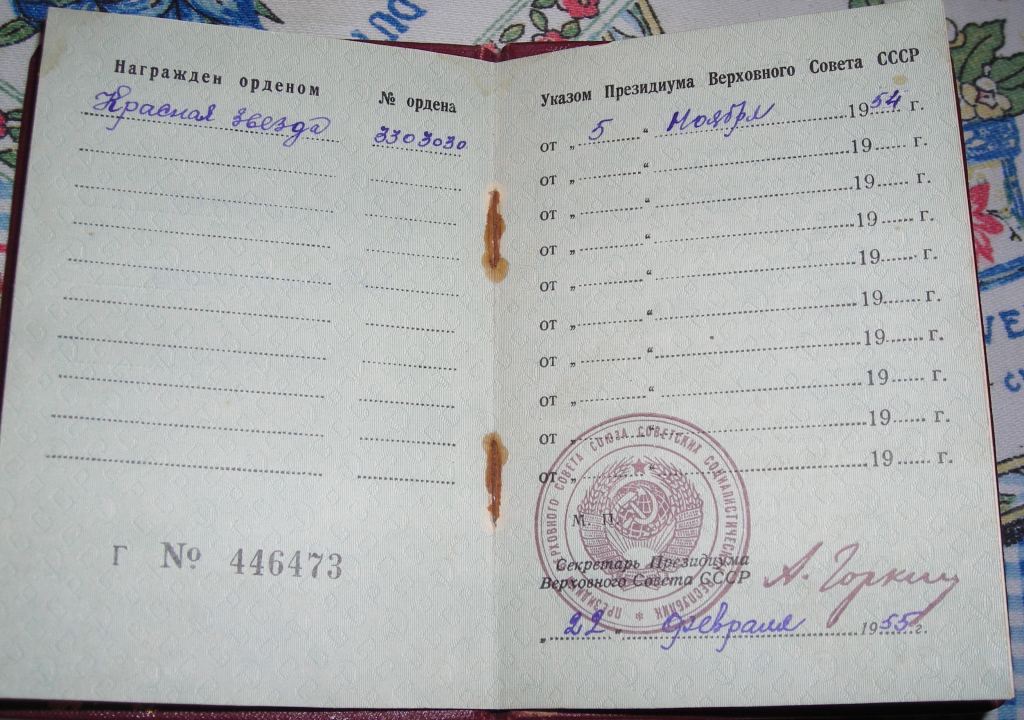 Награжден орденом
№ ордена
Красная звезда
3303030
Г № 446473
Указом Президиума Верховного Совета СССР
от „ 5 “ Ноября 1954 г.
от „ “ 19 г.
от „ “ 19 г.
от „ “ 19 г.
от „ “ 19 г.
от „ “ 19 г.
от „ “ 19 г.
от „ “ 19 г.
от „ “ 19 г.
от „ “ 19 г.
М. П.
Секретарь Президиума
Верховного Совета СССР
А. Горкин
„ 22 “ февраля 1955 г.
ПРЕЗИДИУМ ВЕРХОВНОГО СОВЕТА СОЮЗА СОВЕТСКИХ СОЦИАЛИСТИЧЕСКИХ РЕСПУБЛИК